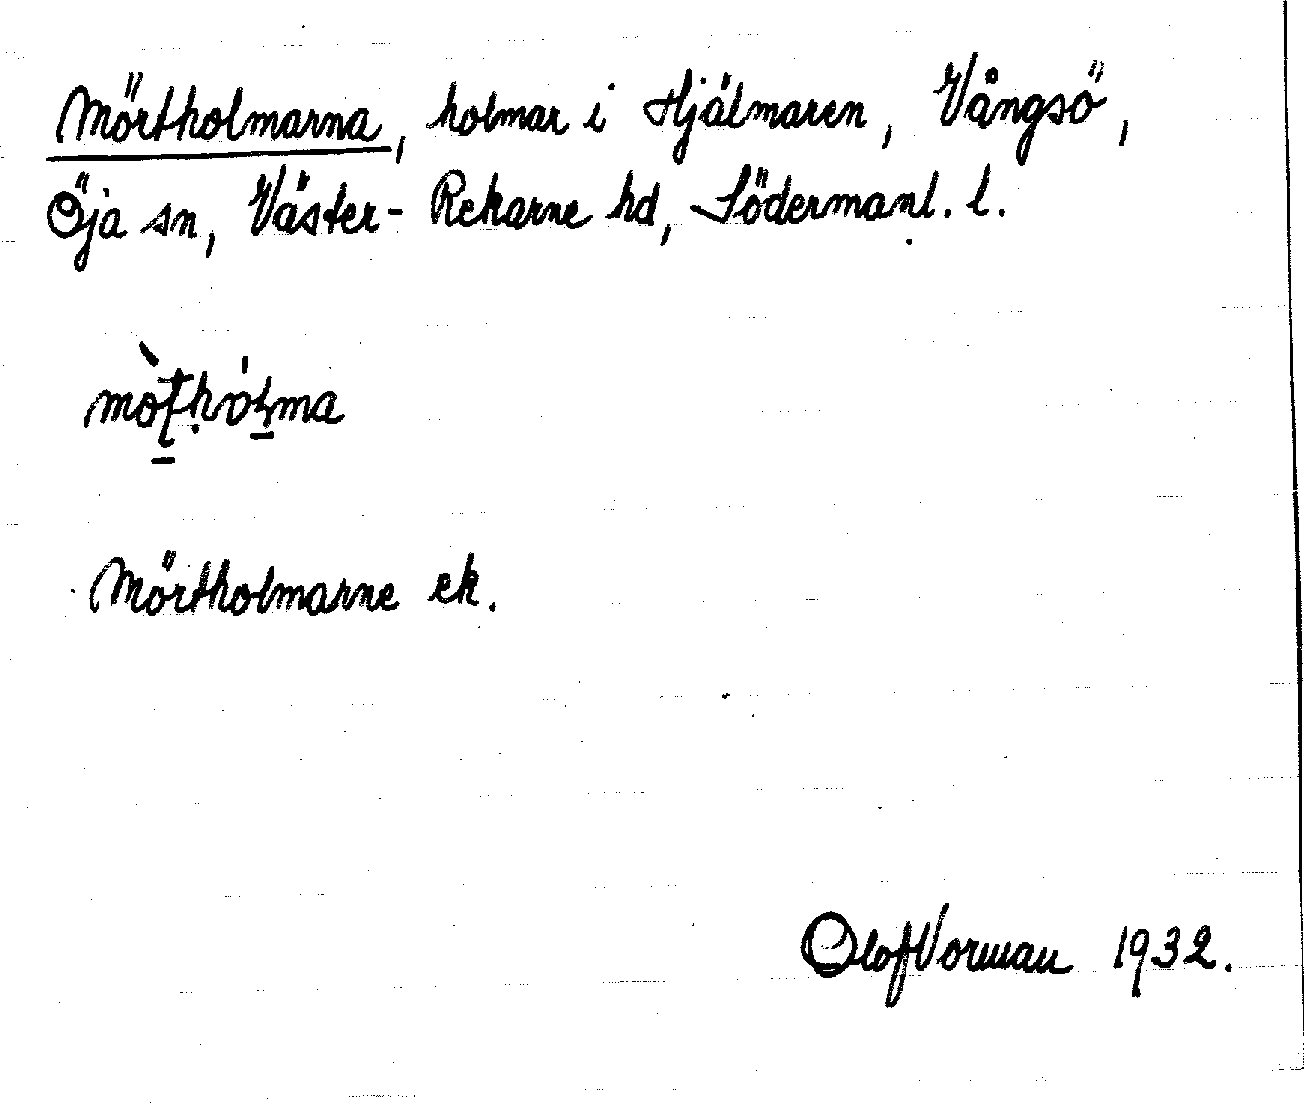 Mörtholmarna, holmar i Hjälmaren, Vångsö,
Öja sn, Väster-Rekarne hd, Södermanl. l.
Mörtholmarne ek.
Olof Vorman 1932.